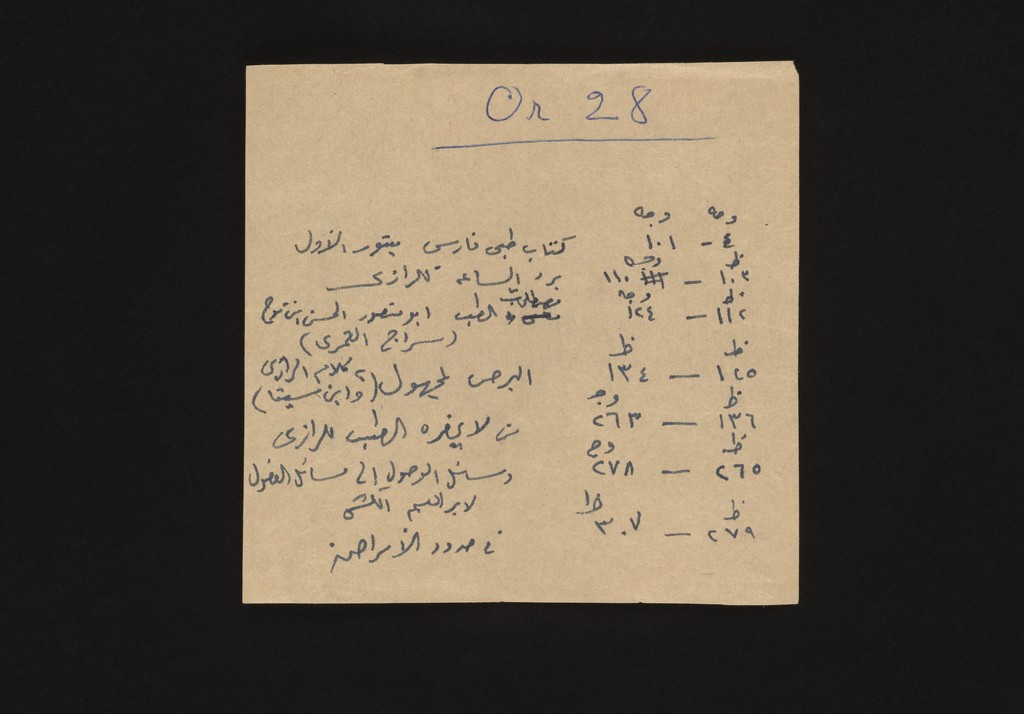 Or 28
وجه وجه
٤ – ١٠١ كتاب طبي فارسي مبتور الأول
ظ وجه
١٠٢ – ١١٠ برء الساعة للرازي
ظ وجه
١١٢ – ١٢٤ مصطلحات الطب ابو منصور الحسن ابن نوح
(سراج القمري)
ظ ظ
١٢٥ – ١٣٤ البرص لمجهول (كلام الرازي
وابن سينا)
ظ وجه
١٣٦ – ٢٦٣ من لا يحضره الطبيب للرازي
ظ وجه
٢٦٥ – ٢٧٨ وسائل الوصول إلى مسائل الفصول
لابراهيم الكشي
ظ ظ
٢٧٩ – ٣٠٧ في حدود الأمراض